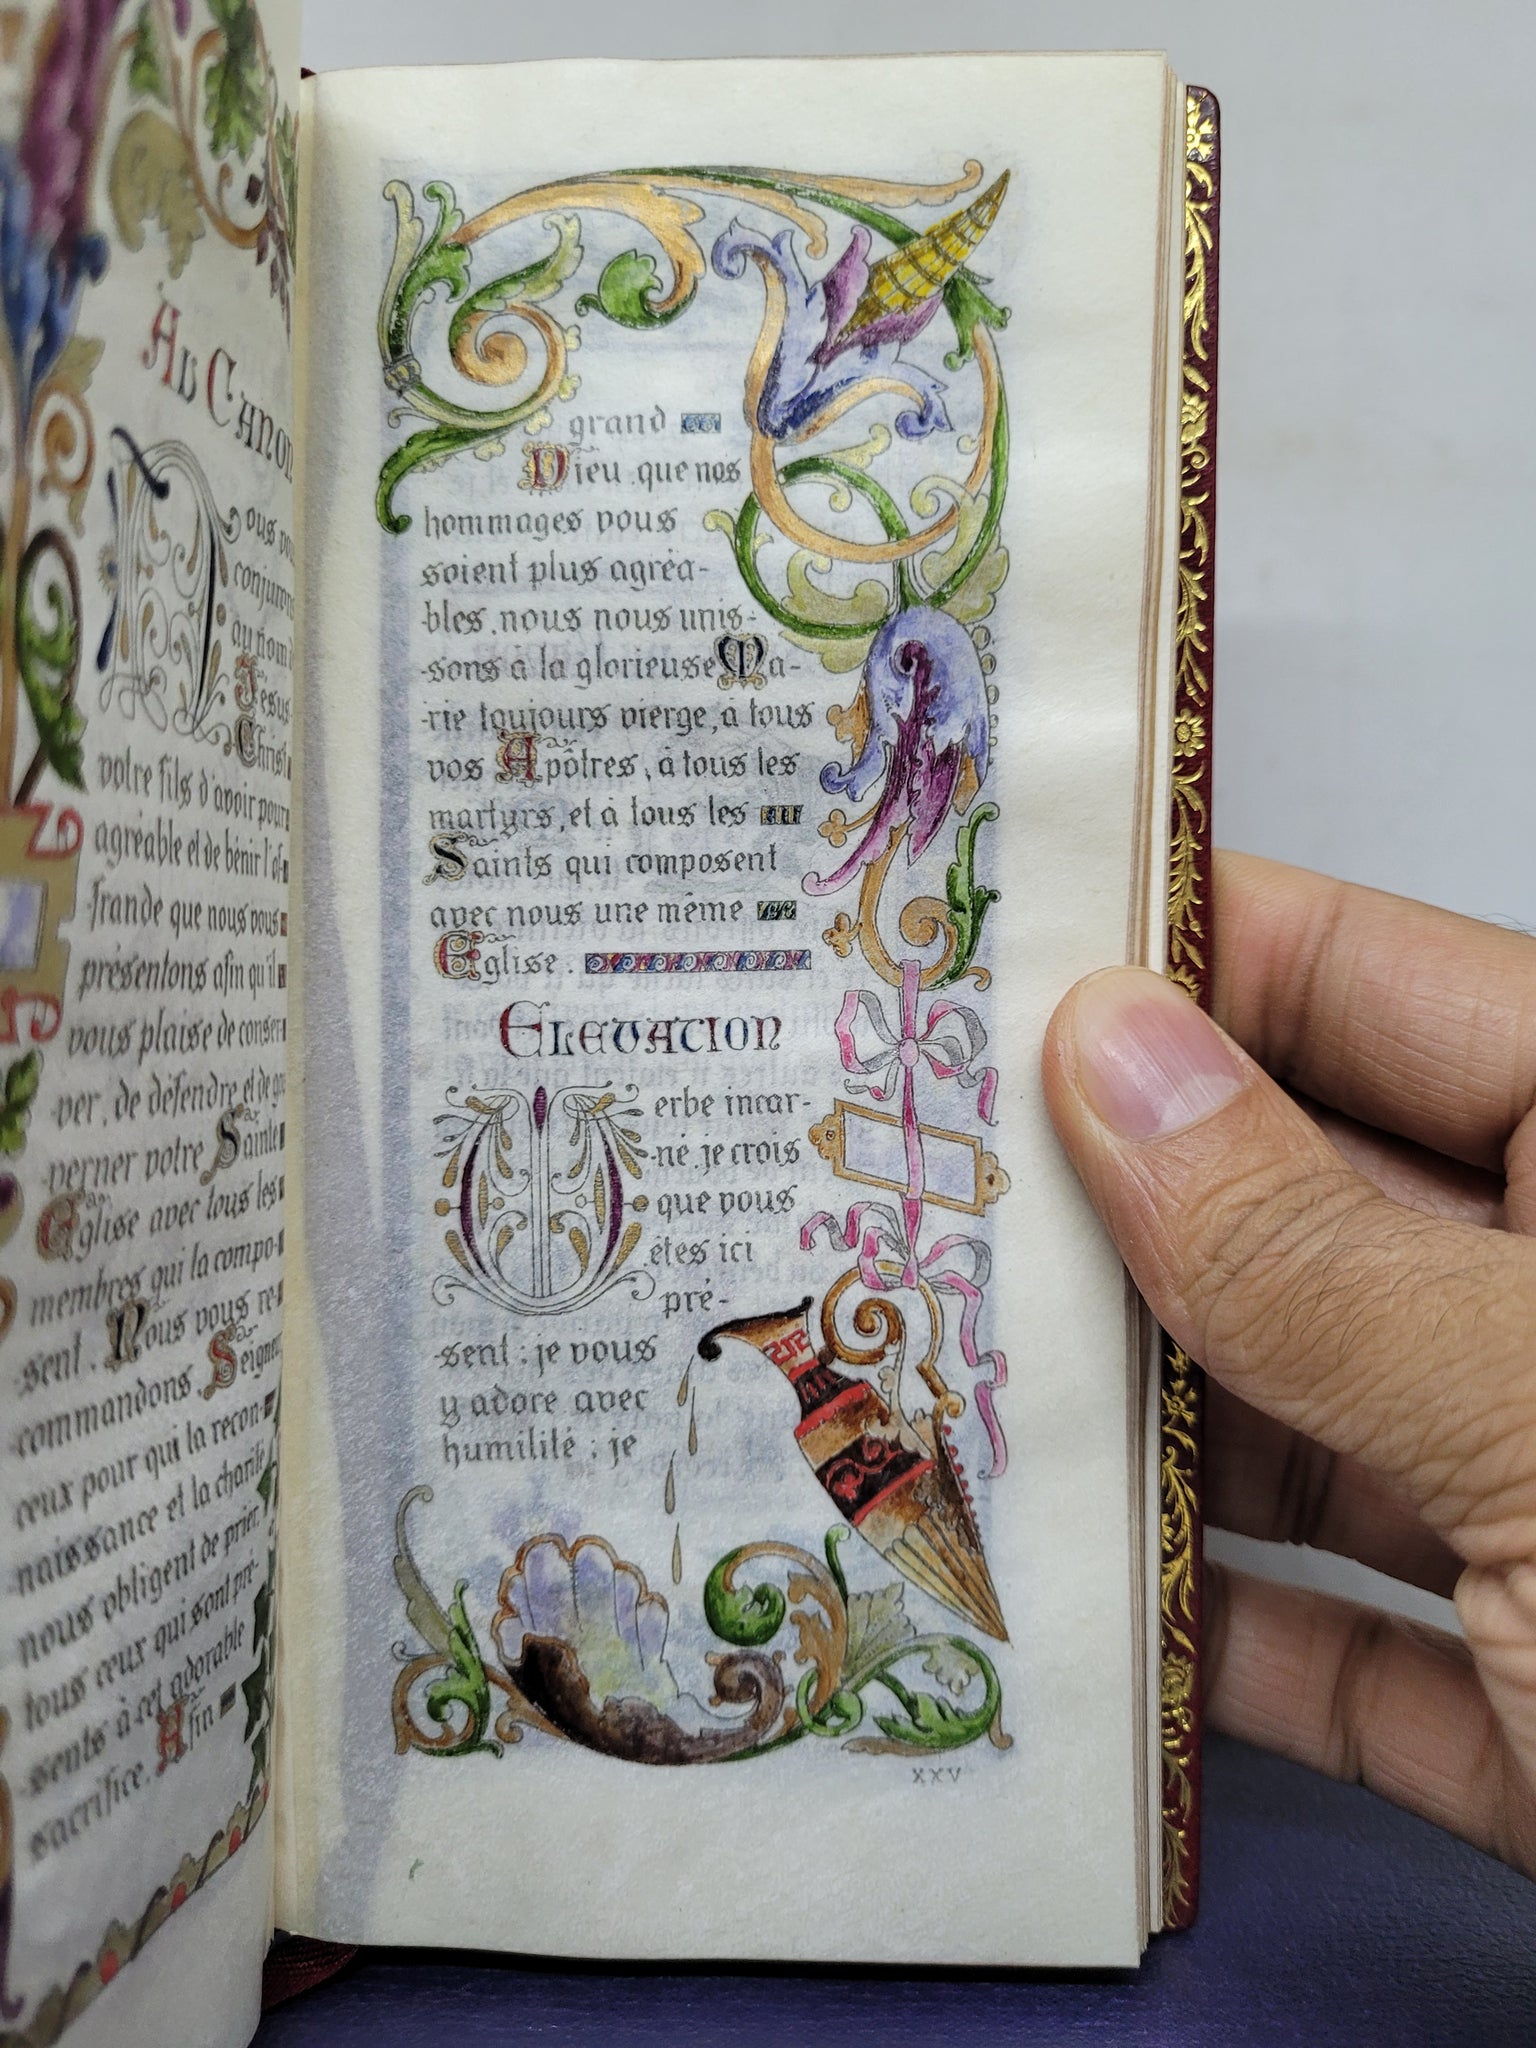 Au Canon
ous vou
conjurons
au nom d
Jésus-
Christ
votre fils d'avoir pour
agréable et de bénir l'of-
-frande que nous vous
présentons afin qu'il
vous plaise de conser-
-ver, de défendre et de gou
-verner votre Sainte
Eglise avec tous les
membres qui la compo-
-sent. Nous vous re-
-commandons Seigneur
ceux pour qui la recon-
-naissance et la charité
nous obligent de prier,
tous ceux qui sont pré-
-sents à cet adorable
sacrifice. Afin
grand
Dieu que nos
hommages vous
soient plus agréa-
-bles, nous nous unis-
-sons à la glorieuse Ma-
-rie toujours vierge, à tous
vos Apôtres, à tous les
martyrs, et à tous les
Saints qui composent
avec nous une même
Eglise.
Elevation
Verbe incar-
-né, je crois
que vous
êtes ici
pré-
-sent : je vous
y adore avec
humilité ; je
XXV